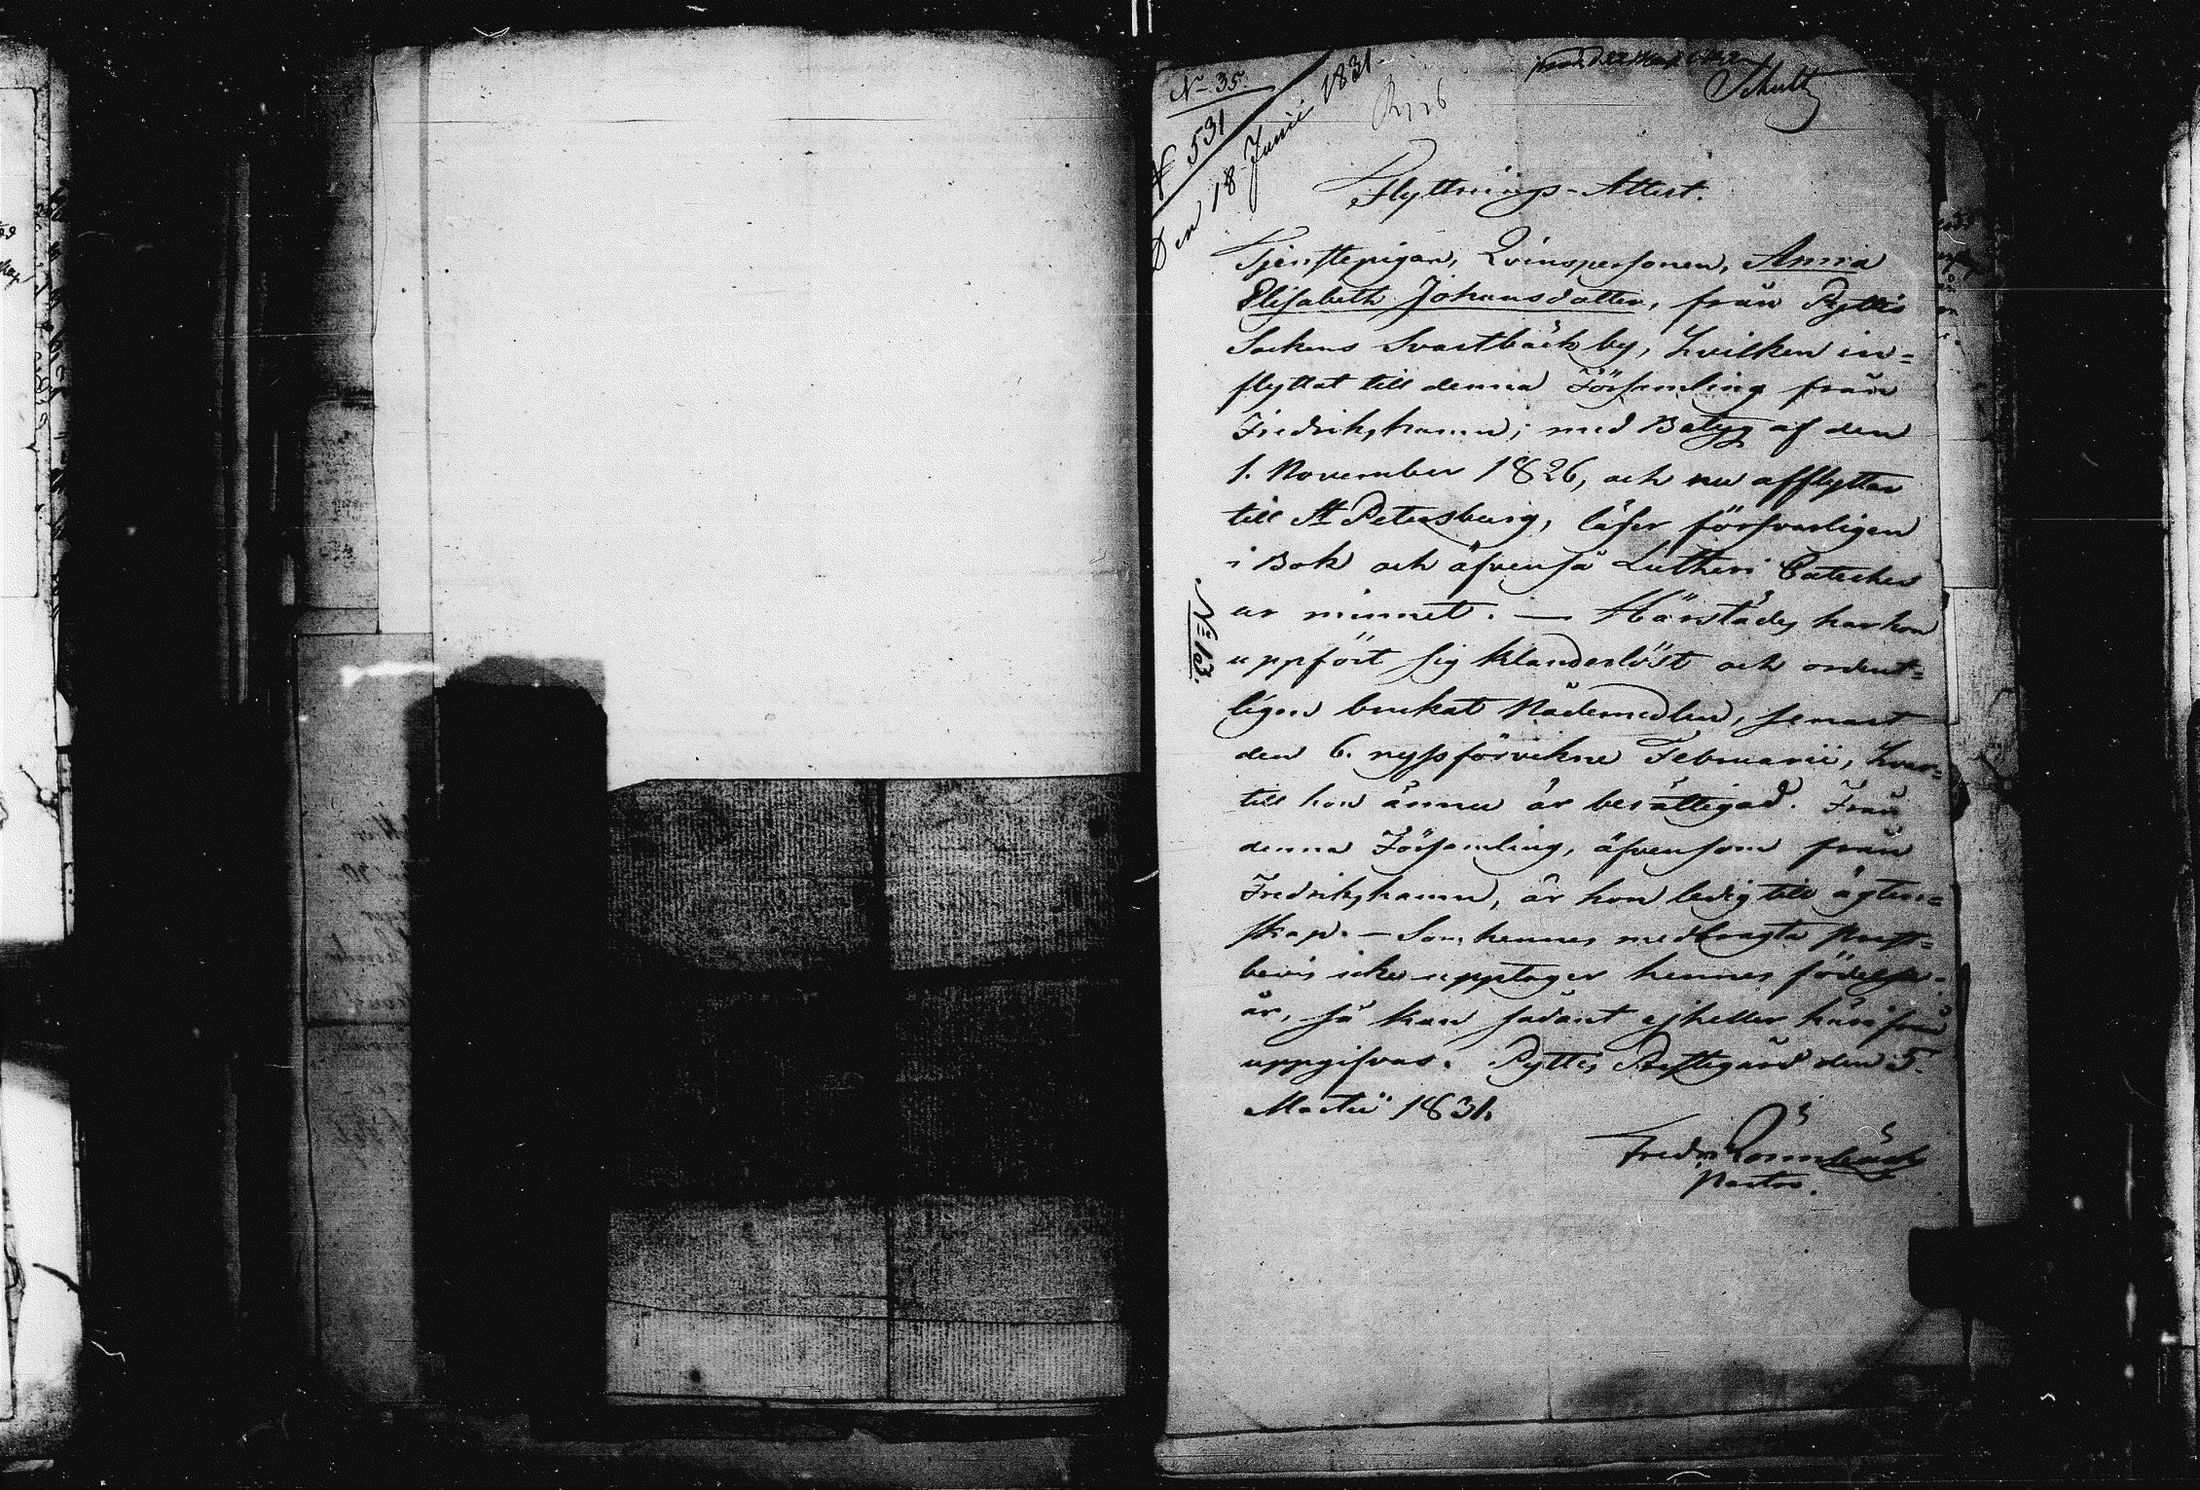 No 35.
No 531
Den 18 Junii 1831.
Schultz
Flyttnings-Attest.
Tjenstepigan, Qvinspersonen, Anna
Elisabeth Johansdotter, från Pyttis
Sockens Svartbäck by, hvilken in=
flyttat till denna Församling från
Fredrikshamn, med Betyg af den
1. November 1826, och nu afflyttar
till St Petersburg, läser försvarligen
i Bok och äfvenså Lutheri Cateches
ur minnet. — Härstädes har hon
uppfört sig klanderlöst och ordent=
ligen brukat Nådemedlen, senast
den 6. nyssförvikne Februarii, hvar=
till hon ännu är berättigad. Från
denna Församling, äfvensom från
Fredrikshamn, är hon ledig till ägten=
skap. — Som hennes medbragta Prest=
bevis icke upptager hennes födelse=
år, så kan sådant ejheller härifrån
uppgifvas. Pyttis Prestegård den 5.
Martii 1831.
Fredr Rönnbäck
Pastor.
No 103.